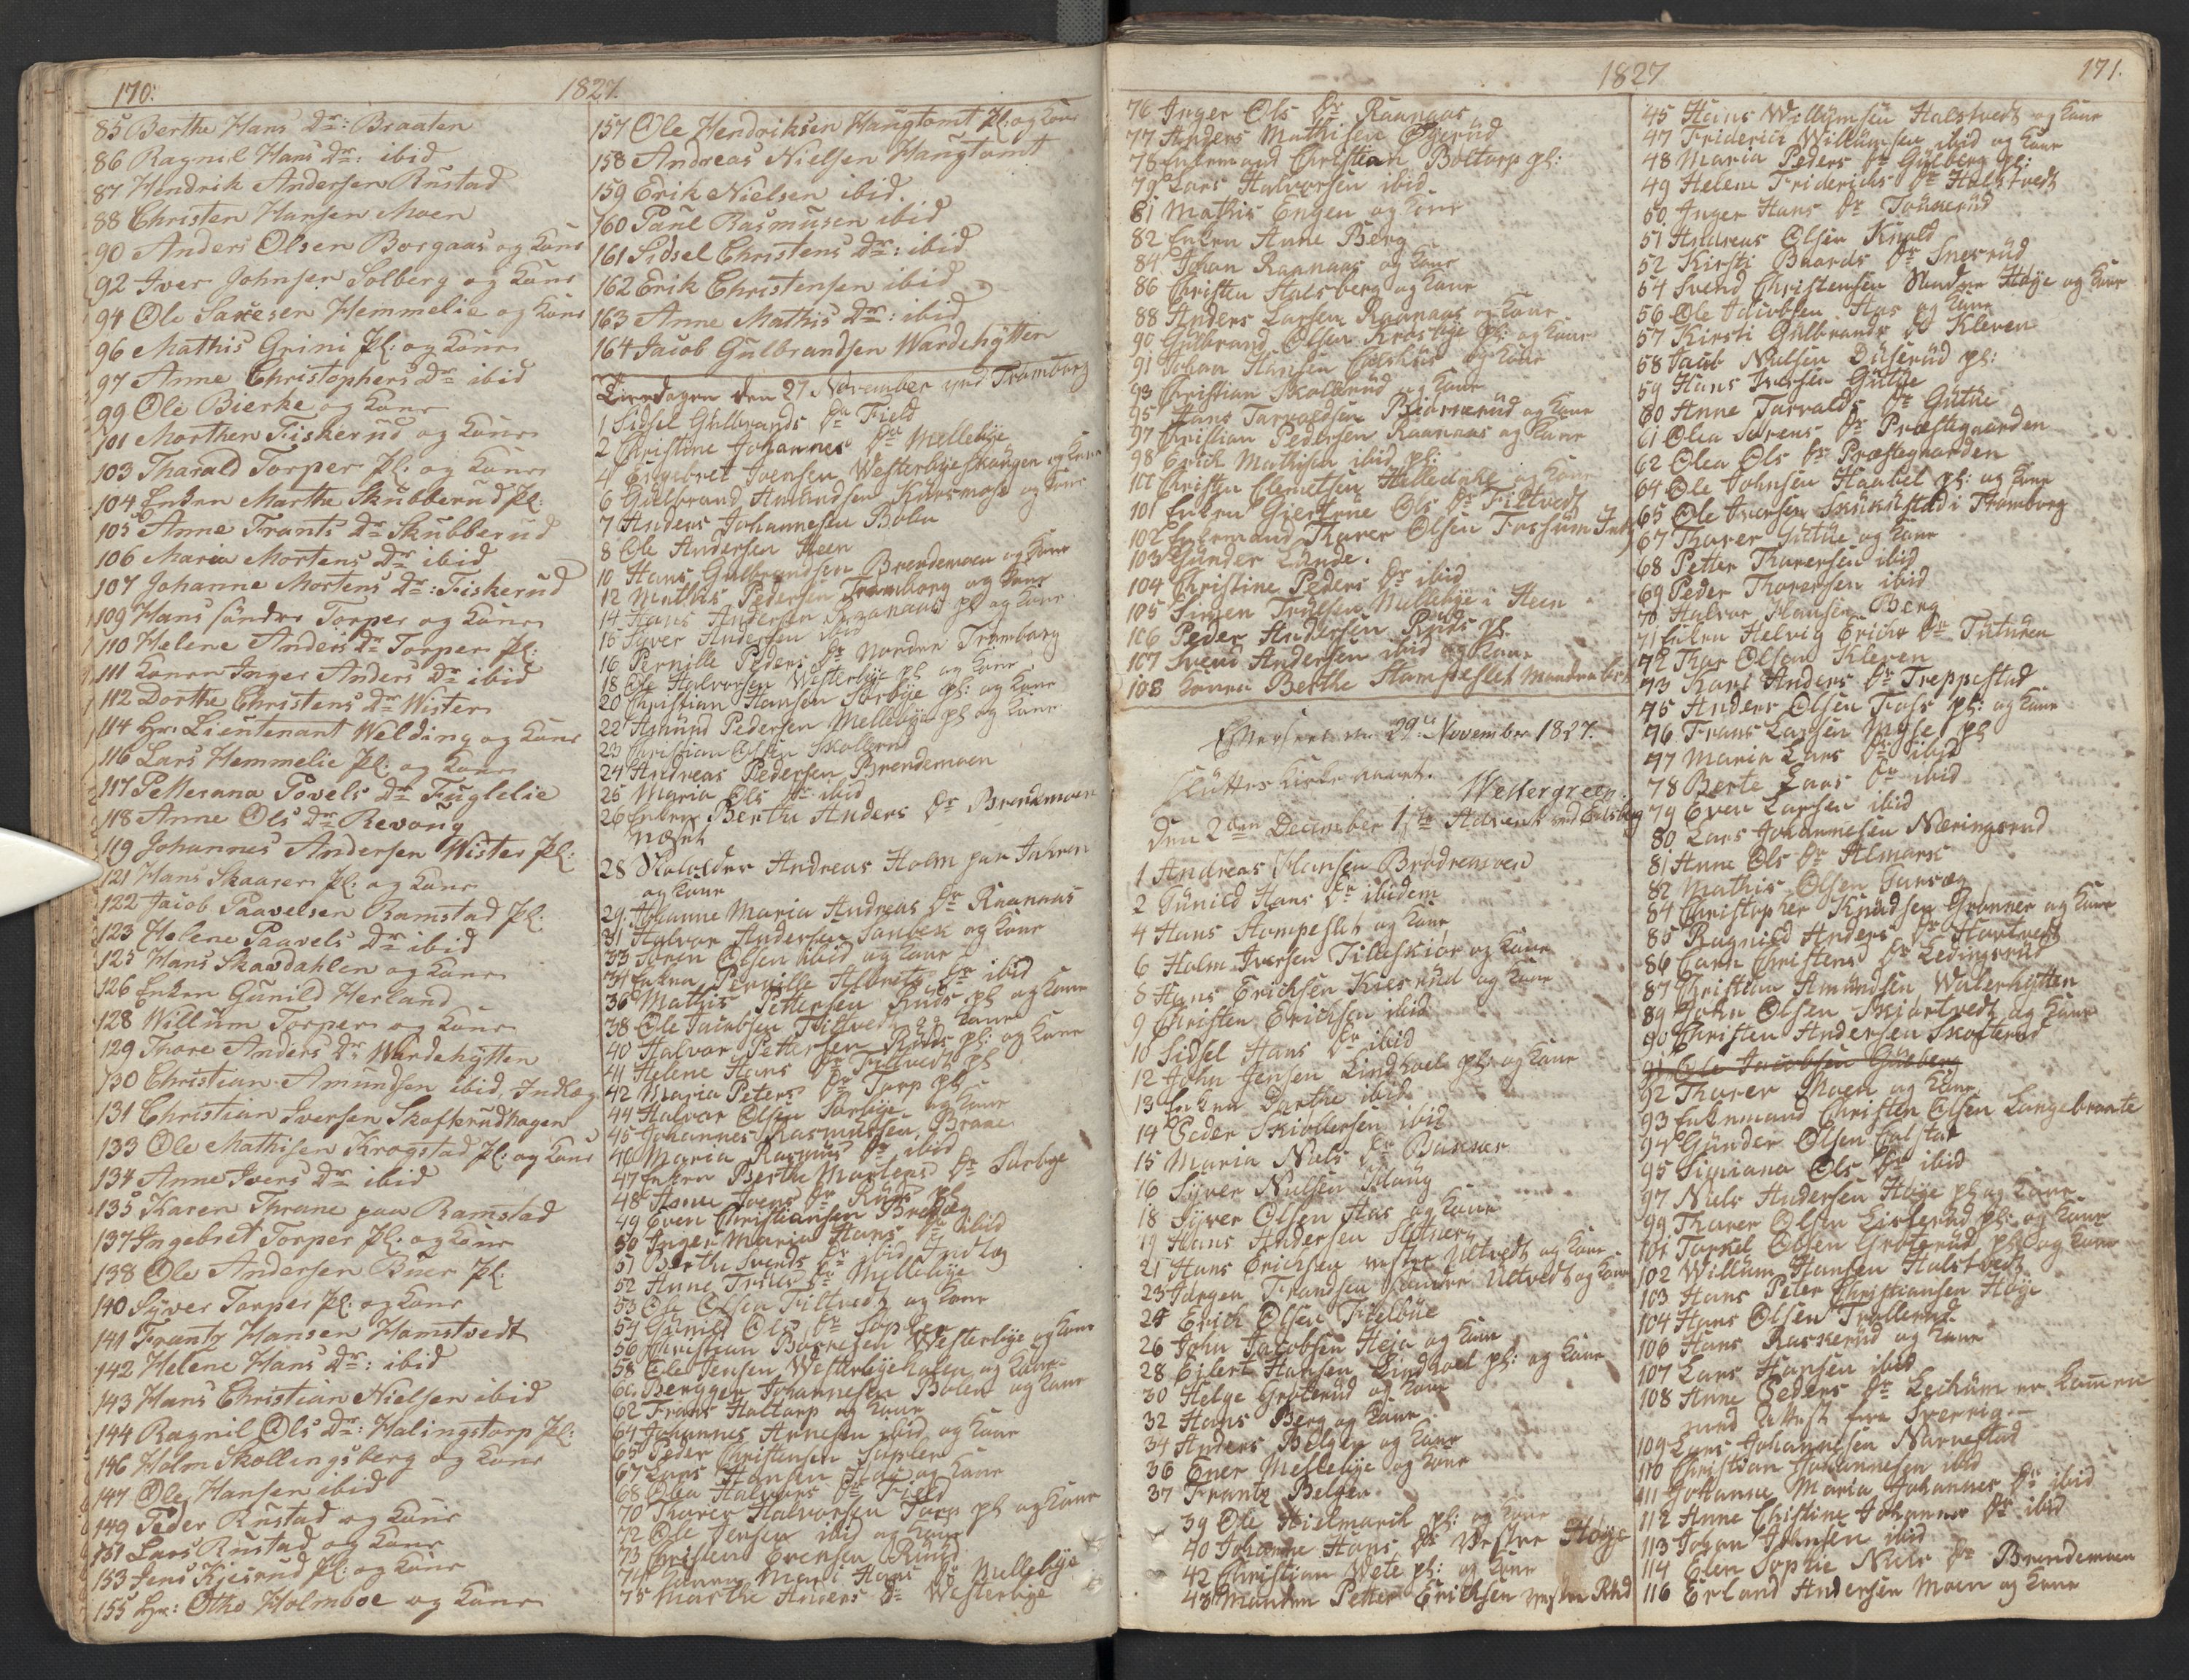 170.
1827.
85 Berthe Hans Dr: Braaten
86 Ragnil Hans Dr: ibid
87 Hendrik Andersen Rustad
88 Christen Hansen Moen
90 Anders Olsen Borgaas og Kone
92 Iver Johnsen Solberg og Kone
94 Ole Hemmelie og Kone
96 Mathis Grini Pl: og Kone
97 Anne Christophers Dr ibid
99 Ole Bierke og Kone
101 Morthen Fiskerud og Kone
103 Tharald Torper Pl: og Kone
104 Enken Marthe Skubberud Pl:
105 Anne Frants Dr Skubberud
106 Maria Mortens Dr ibid
107 Johanne Mortens Dr: Fiskerud
109 Hans søndre Torper og Kone
110 Helene Anders Dr Torper Pl:
111 Konen Inger Anders Dr ibid
112 Dorthe Christens Dr Wister
114 Hr: Lieutenant Welding og Kone
116 Lars Hemmelie Pl: og Kone
117 Pellerana Povels Dr Fuglelie
118 Anne Ols Dr Revoug
119 Johannes Andersen Wister Pl:
121 Hans Skaarer Pl: og Kone
122 Jacob Paavelsen Ramstad Pl:
123 Helene Paavels Dr ibid
125 Hans Skavdahlen og Kone
126 Enken Gunild Herland
128 Willum Torper og Kone
129 Thore Anders Dr Wardehytten
130 Christian Amundsen ibid, Indlæg
131 Christian Iversen Skofterudhagen
133 Ole Mathisen Krogstad Pl: og Kone
134 Anne Ivers Dr ibid
135 Karen Thrane paa Ramstad
137 Ingebret Torper Pl: og Kone
138 Ole Andersen Buer Pl:
140 Syver Torper Pl: og Kone
141 Frantz Hansen Hamstvedt
142 Helene Hans Dr: ibid
143 Hans Christian Nielsen ibid
144 Ragnil Ols Dr: Halingstorp Pl:
146 Holm Skollingsberg og Kone
147 Ole Hansen ibid
149 Peder Rustad og Kone
151 Lars Rustad og Kone
153 Jens Kiesrud Pl: og Kone
155 Hr: Otho Holmboe og Kone
157 Ole Hendriksen Haugtomt Pl: og Kone
158 Andreas Nielsen Haugtomt
159 Erik Nielsen ibid.
160 Paul Rasmusen ibid
161 Sidsel Christens Dr: ibid
162 Erik Christensen ibid
163 Anne Mathis Dr: ibid
164 Jacob Gulbrandsen Wardehytten
Tirsdagen den 27 November ved Tromborg
1 Sidsel Gulbrands Dr Field
2 Christine Johannes Dr Mellebye
4 Engebret Ivensen Westerbyeskougen og Kone
6 Gulbrand Amundsen Kursmose og Kone
7 Anders Johannesen Bolen
8 Ole Andersen Steen
10 Hans Gulbrandsen Brendemoen og Kone
12 Mathis Pedersen Tromborg og Kone
14 Hans Andersen Raanaas pl og Kone
15 Syver Andersen ibid
16 Pernille Peders Dr Nordre Tromborg
18 Ole Halvorsen Westerbye pl og Kone
20 Christian Hansen Sørbye pl: og Kone
22 Amund Pedersen Mellebye pl og Kone
23 Christian Olsen Skollerud
24 Andreas Pedersen Brendemoen
25 Maria Ols Dr ibid
26 Enken Berthe Anders Dr Brendemoen
28 Andreas Holm paa
og Kone
29. Johanne Maria Andreas Dr Raanaas
31 Halvor Andersen Sanbek og Kone
33 Søren Olsen ibid og Kone
34 Enken Pernille Dr ibid
36 Mathis Pettersen Ruds pl og Kone
38 Ole Jacobsen Filtvedt og Kone
40 Halvor Pettersen Ruds pl: og Kone
41 Helene Hans Dr Filtvedt pl
42 Maria Peters Dr Torp pl:
44 Halvor Olsen Sørbye og Kone
45 Johannes Rasmussen Braae
46 Maria Rasmus Dr ibid
47 Enken Berthe Mortens Dr Sørbye
48 Anne Ivers Dr Ruds pl
49 Even Christiansen
50 Inger Maria Hans Dr ibid
51 Berthe Svends Dr ibid Indlæg
52 Anne Dr Mellebye
53 Ole Olsen Filtvedt og Kone
54 Gunild Ols Dr Soplen
56 Christian Westerbye og Kone
58 Ole Jensen Westerbyehalen og Kone
60 Johannesen Bolen og Kone
62 Frans Haltorp og Kone
64 Johannes Arnesen ibid og Kone
65 Peder Christensen Soplen
67 Lars Hansen og Kone
68 Olea Halvors Dr Field
70 Thorer Halvorsen Torp pl og Kone
72 Ole Jensen ibid og Kone
73 Christen Evensen Ruud
74 Konen Mari Hans Dr Mellebye
75 Marthe Anders Dr Westerbye
1827
171.
76 Inger Ols Dr Raanaas
77 Anders Mathisen Øgerud
78 Enkemand Christian Boltorp pl:
79 Lars Halvorsen ibid
81 Mathis Engen og Kone
82 Enken Anne Berg
84 Johan Raanaas og Kone
86 Christen Halsberg og Kone
88 Anders Larsen Raanaas og Kone
90 Gulbrand Olsen Krosbye pl: og Kone
91 Johan Hansen og Kone
93 Christian Skollerud og Kone
95 Hans Torvaldsen Biørnerud og Kone
97 Christian Pedersen Raanaas og Kone
98 Erich Mathisen ibid pl:
100 Christen Clemetsen Helledahl og Kone
101 Enken Giertrue Ols Dr Filtvedt
102 Enkemand Thorer Olsen Fossum
103 Gunder Lunde.
104 Christine Peders Dr ibid
105 Mellebye i Steen
106 Peder Andersen Ruds pl.
107 Svend Andersen ibid og Kone
108 Konen Berthe Stampeslet Manden
29de November 1827.
Wellergreen.
Den 2den December 1ste Advent ved Eidsberg
1 Andreas Hansen
2 Gunild Hans Dr ibidem
4 Hans Stompeslet og Kone
6 Holm Iversen Tilleskiør og Kone
8 Hans Erichsen Kiesrud og Kone
9 Christen Erichsen ibid
10 Sidsel Hans Dr ibid
12 John Jensen Lindhoel pl: og Kone
13 Enken Dorthe ibid
14 Peder ibid
15 Maria Niels Dr
16 Syver Nielsen
18 Syver Olsen Has og Kone
19 Hans Andersen
21 Hans Erichsen vestre Ultvedt og Kone
23 Jørgen Frandsen søndre Ultvedt og Kone
24 Erich Olsen Fikelbue
26 John Jacobsen Heja og Kone
28 Eilert Hansen Lindhoel pl: og Kone
30 Helge Groterud og Kone
32 Hans Berg og Kone
34 Anders Belgen og Kone
36 Ener Mellebye og Kone
37 Frantz Belgen
39 Ole Hielmark pl: og Kone
40 Johanne Hans Dr Vestre Høye
42 Christian Wete pl: og Kone
43 Manden Petter Erichsen vestre Rud
45 Hans Willumsen Halstvedt og Kone
47 Friderich Willumsen ibid og Kone
48 Maria Peders Dr Gulberg pl:
49 Helene Friderichs Dr Halstvedt
50 Inger Hans Dr
51 Andreas Olsen Knold
52 Kirsti Baards Dr Snesrud
54 Svend Christensen Nordre Høye og Kone
56 Ole Jacobsen Has og Kone
57 Kirsti Gulbrands Dr Kleven
58 Jacob Nielsen Duserud pl:
59 Hans Iversen Gutue
60 Anne Torvalds Dr Gutue
61 Olea Sørens Dr Præstegaarden
62 Olea Ols Dr Præstegaarden
64 Ole Johnsen Haabel pl: og Kone
65 Ole Iversen Skukustad i Tromborg
67 Thorer Gutue og Kone
68 Petter Thorersen ibid
69 Peder Thorersen ibid
70 Halvor Hansen Berg
71 Enken Helvig Erichs Dr
72 Thor Olsen Kleven
73 Kari Anders Dr Treppestad
75 Anders Olsen Foss pl: og Kone
76 Frans Larsen Myse pl
77 Maria Lars Dr ibid
78 Berte Lars Dr ibid
79 Even Larsen ibid
80 Lars Johannesen Næringsrud
81 Anne Ols Dr Hilmark
82 Mathis Olsen
84 Christopher Knudsen Grønner og Kone
85 Ragnild Anders Dr Hartvedt
86 Karen Christens Dr Ledingsrud
87 Christian Amundsen Walerhytten
89 John Olsen og Kone
90 Christen Andersen Skofterud
91 Ole Jacobsen
92 Thorer Moen og Kone
93 Enkemand Christen Olsen Langebraate
94 Gunder Olsen
95 Sipriana Ols Dr ibid
97 Niels Andersen Høye pl og Kone
99 Thorer Olsen Lislerud pl: og Kone
101 Torkel Olsen Groterud pl: og Kone
102 Willum Hansen Halstvedt
103 Hans Peter Christiansen Høye
104 Hans Olsen Trollerud
106 Hans Raskerud og Kone
107 Lars Hansen ibid
108 Anne Peders Dr Lechum er kommen
med Attest fra Sverrig.
109 Lars Johannesen Narvestad
110 Christian Johannesen ibid
111 Johanne Maria Johannes Dr ibid
112 Anne Christine Johannes Dr ibid
113 Johan Johnsen ibid
114 Elen Sophie Niels Dr Brendemoen
116 Erland Andersen Moen og Kone